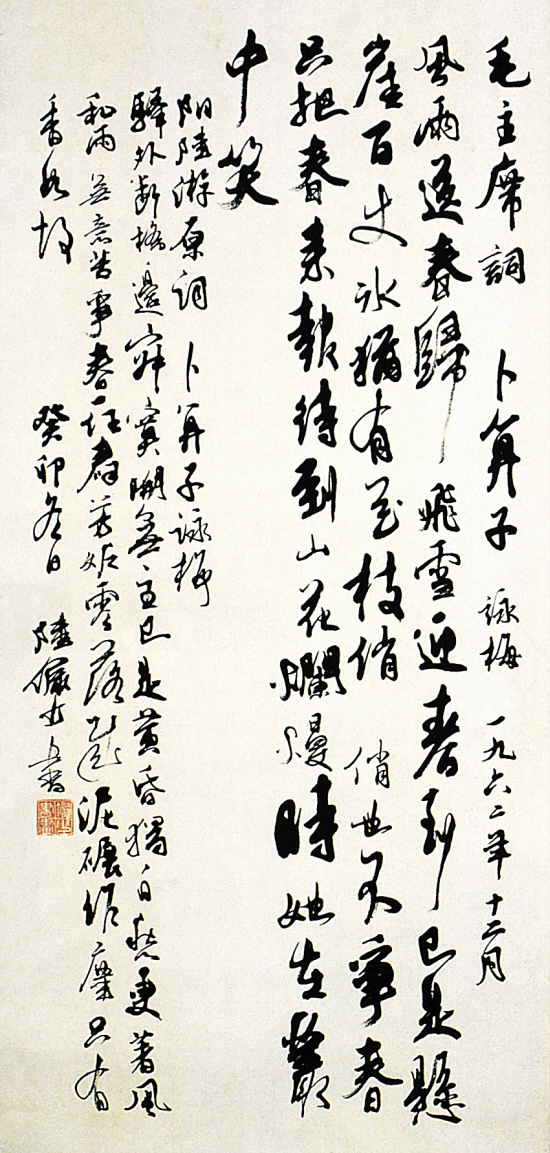 毛主席詞 卜算子 詠梅 一九六二年十二月
風雨送春歸飛雪迎春到已是懸
崖百丈冰猶有花枝俏 俏也不爭春
只把春來報待到山花爛漫時她在叢
中笑
附陸游原詞 卜算子詠梅
驛外斷橋邊寂寞開無主已是黃昏獨自愁更著風
和雨 無意苦爭春一任群芳妒零落成泥碾作塵只有
香如故 癸卯冬日 陸儼少書